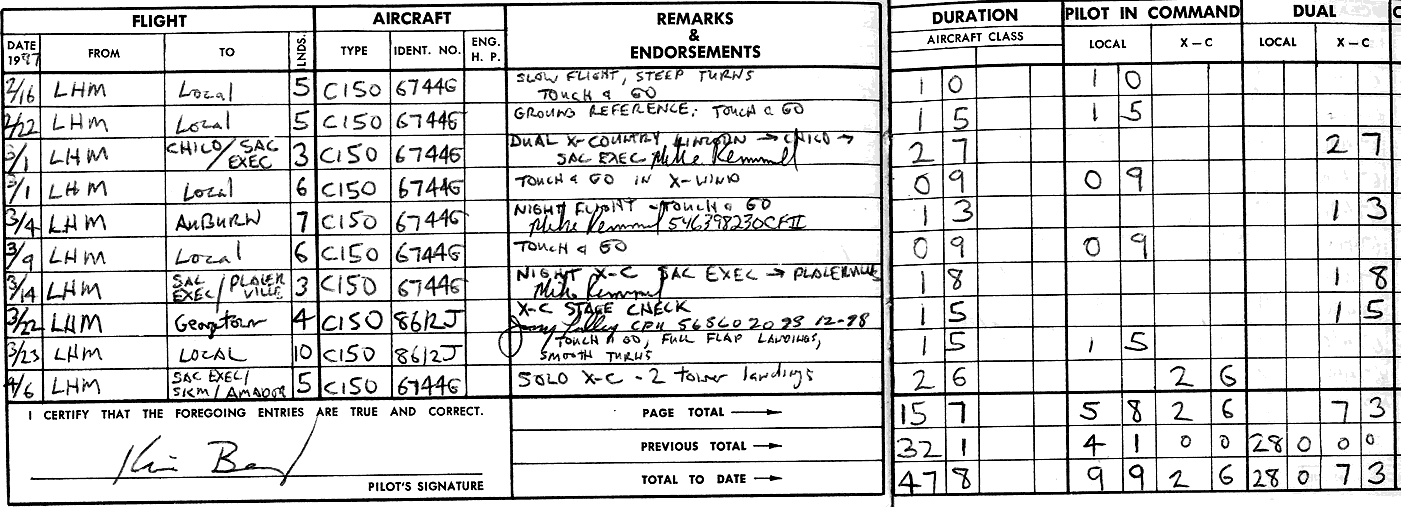 FLIGHT AIRCRAFT REMARKS & ENDORSEMENTS DURATION PILOT IN COMMAND DUAL
DATE 1997 FROM TO LNDS. TYPE IDENT. NO. ENG. H. P. AIRCRAFT CLASS LOCAL X-C LOCAL X-C
2/16 LHM LOCAL 5 C150 6744G SLOW FLIGHT, STEEP TURNS 1 0 1 0
TOUCH & GO
2/22 LHM LOCAL 5 C150 6744G GROUND REFERENCE, TOUCH & GO 1 5 1 5
3/1 LHM CHICO/SAC EXEC 3 C150 6744G DUAL X-COUNTRY LINCOLN → CHICO → 2 7 2 7
SAC EXEC Mike Remmel
3/1 LHM LOCAL 6 C150 6744G TOUCH & GO IN X-WIND 0 9 0 9
3/4 LHM AUBURN 7 C150 6744G NIGHT FLIGHT - TOUCH & GO 1 3 1 3
Mike Remmel 546398230CFII
3/9 LHM LOCAL 6 C150 6744G TOUCH & GO 0 9 0 9
3/14 LHM SAC EXEC/PLACERVILLE 3 C150 6744G NIGHT X-C SAC EXEC → PLACERVILLE 1 8 1 8
Mike Remmel
3/22 LHM Georgetown 4 C150 8612J X-C STAGE CHECK 1 5 1 5
12-98
3/23 LHM LOCAL 10 C150 8612J TOUCH & GO, FULL FLAP LANDINGS, 1 5 1 5
SMOOTH TURNS
4/6 LHM SAC EXEC/ AMADOR 5 C150 6744G SOLO X-C - 2 tower landings 2 6 2 6
I CERTIFY THAT THE FOREGOING ENTRIES ARE TRUE AND CORRECT. PAGE TOTAL → 15 7 5 8 2 6 7 3
PREVIOUS TOTAL → 32 1 4 1 0 0 28 0 0 0
PILOT'S SIGNATURE TOTAL TO DATE → 47 8 9 9 2 6 28 0 7 3